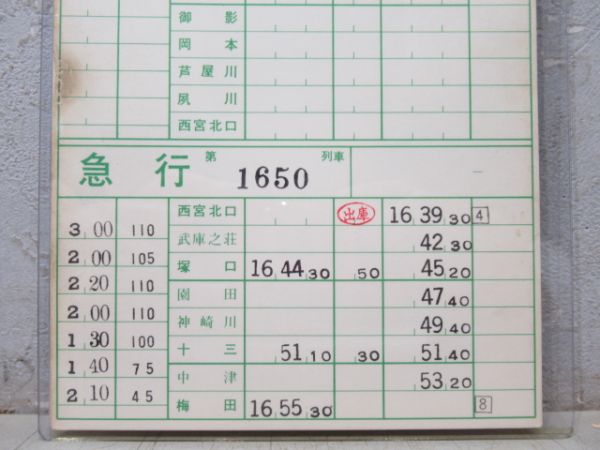 御影
岡本
芦屋川
夙川
西宮北口
急行 第 1650 列車
西宮北口 出庫 16 39 30 4
3 00 110 武庫之荘 42 30
2 00 105 塚口 16 44 30 50 45 20
2 20 110 園田 47 40
2 00 110 神崎川 49 40
1 30 100 十三 51 10 30 51 40
1 40 75 中津 53 20
2 10 45 梅田 16 55 30 8